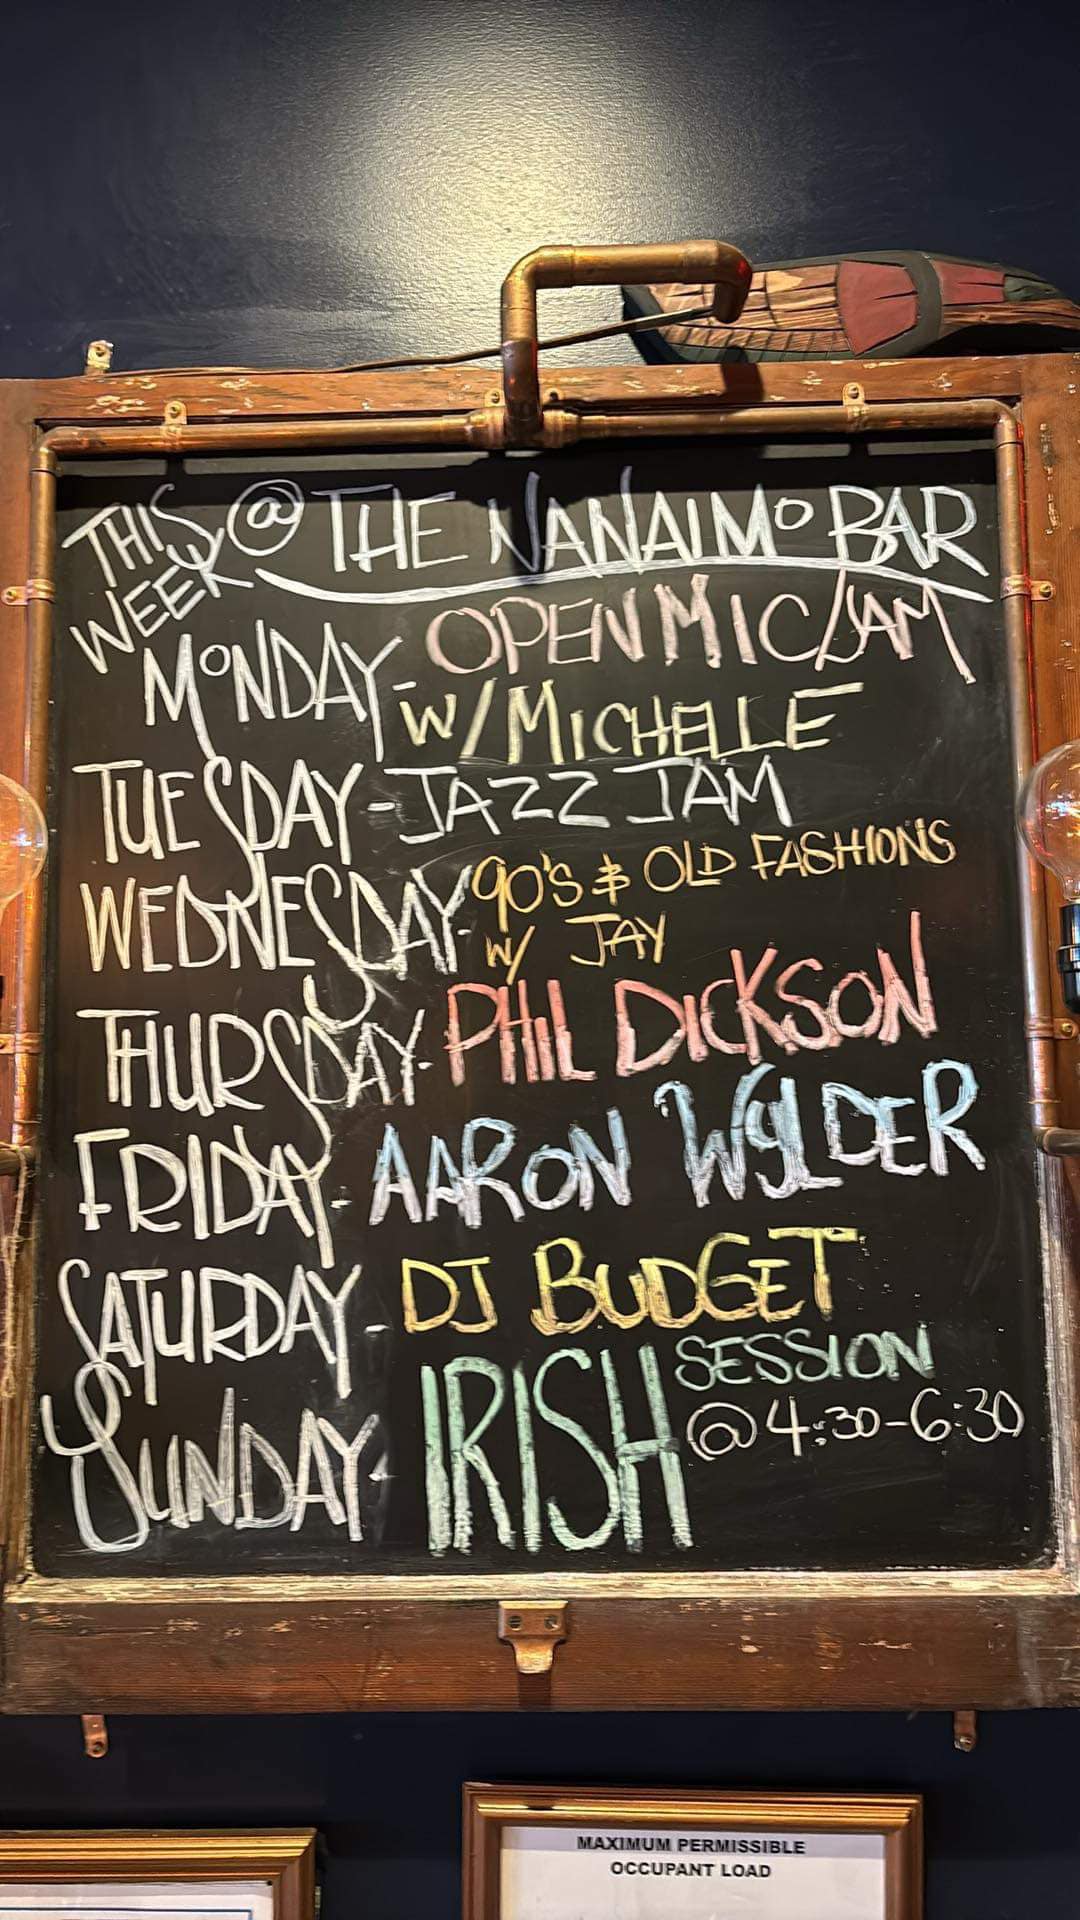 THIS WEEK @ THE NANAIMO BAR
MONDAY - OPEN MIC/JAM
W/ MICHELLE
TUESDAY - JAZZ JAM
WEDNESDAY - 90'S & OLD FASHIONS
W/ JAY
THURSDAY - PHIL DICKSON
FRIDAY - AARON WYLDER
SATURDAY - DJ BUDGET
SUNDAY - IRISH SESSION
@ 4:30-6:30
MAXIMUM PERMISSIBLE
OCCUPANT LOAD